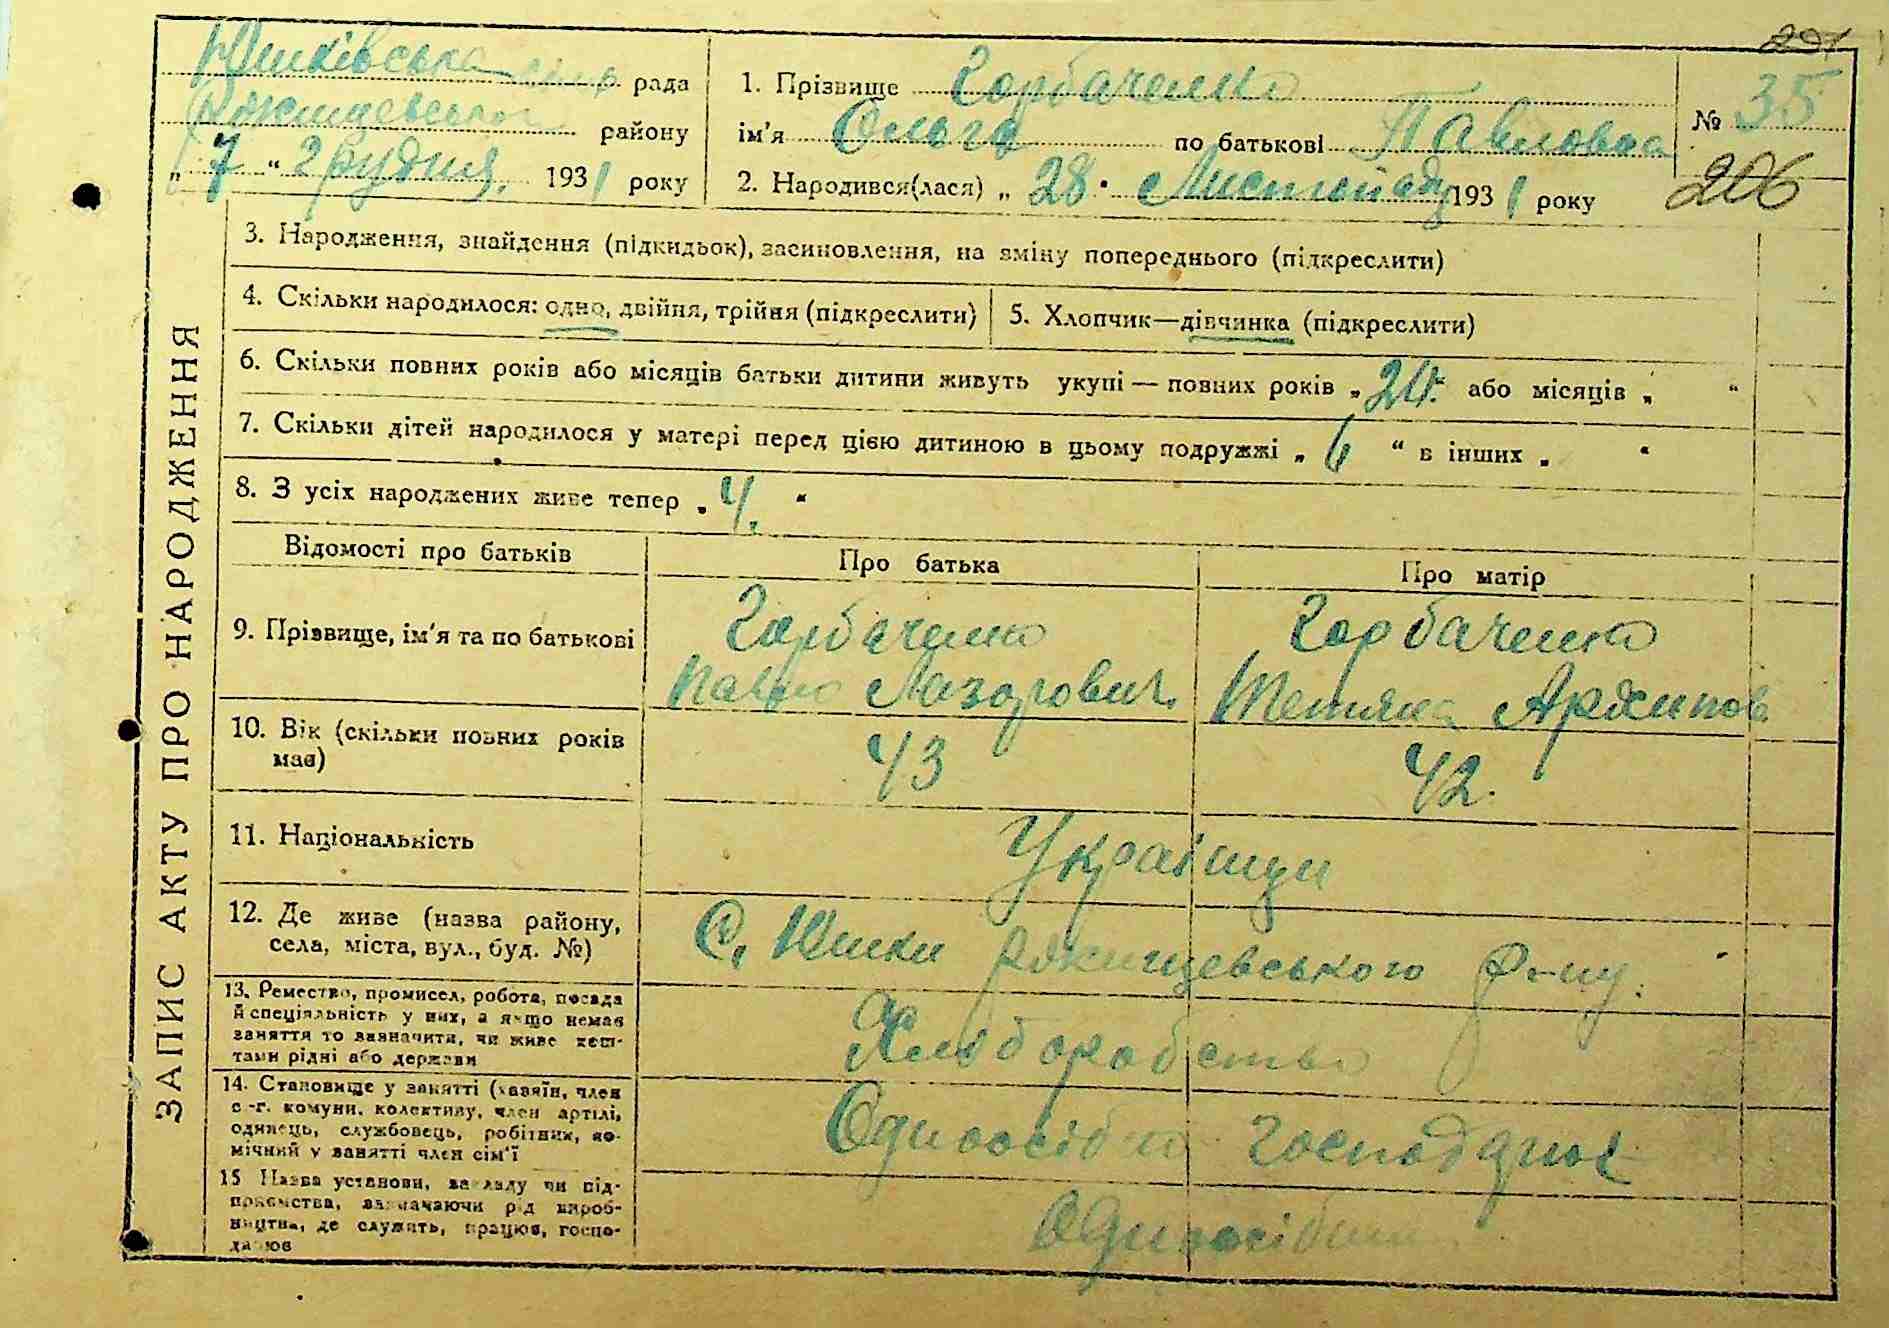 201
Юшківська сільр рада
Ржищевського району
„ 7 “ Грудня 1931 року
1. Прізвище Горбаченко
ім'я Ольга по батькові Павловна
2. Народився(лася) „ 28 “ Листопаду 1931 року
№ 35
206
3. Народження, знайдення (підкидьок), засиновлення, на зміну попереднього (підкреслити)
4. Скільки народилося: одно, двійня, трійня (підкреслити)
5. Хлопчик—дівчинка (підкреслити)
6. Скільки повних років або місяців батьки дитини живуть укупі — повних років „ 24. або місяців „ “
7. Скільки дітей народилося у матері перед цією дитиною в цьому подружжі „ 6 “ в інших „ “
8. З усіх народжених живе тепер „ 4. “
ЗАПИС АКТУ ПРО НАРОДЖЕННЯ
Відомості про батьків
Про батька
Про матір
9. Прізвище, ім'я та по батькові
Горбаченко
Павло Лазорович.
Горбаченко
Тетяна Архипов
10. Вік (скільки повних років
має)
43
42.
11. Національність
Українци
12. Де живе (назва району,
села, міста, вул., буд. №)
С. Юшки Ржищевського р-ну.
13. Ремество, промисел, робота, посада
й спеціяльність у них, а якщо немає
заняття то зазначити, чи живе кош-
тами рідні або держави
Хліборобство
14. Становище у занятті (хазяїн, член
с.-г. комуни, колективу, член артілі,
одинець, службовець, робітник, по-
мічний у занятті член сім'ї
Одноосібно господарює
15 Назва установи, закладу чи під-
приємства, зазначаючи рід вироб-
ництва, де служить, працює, госпо-
дарює